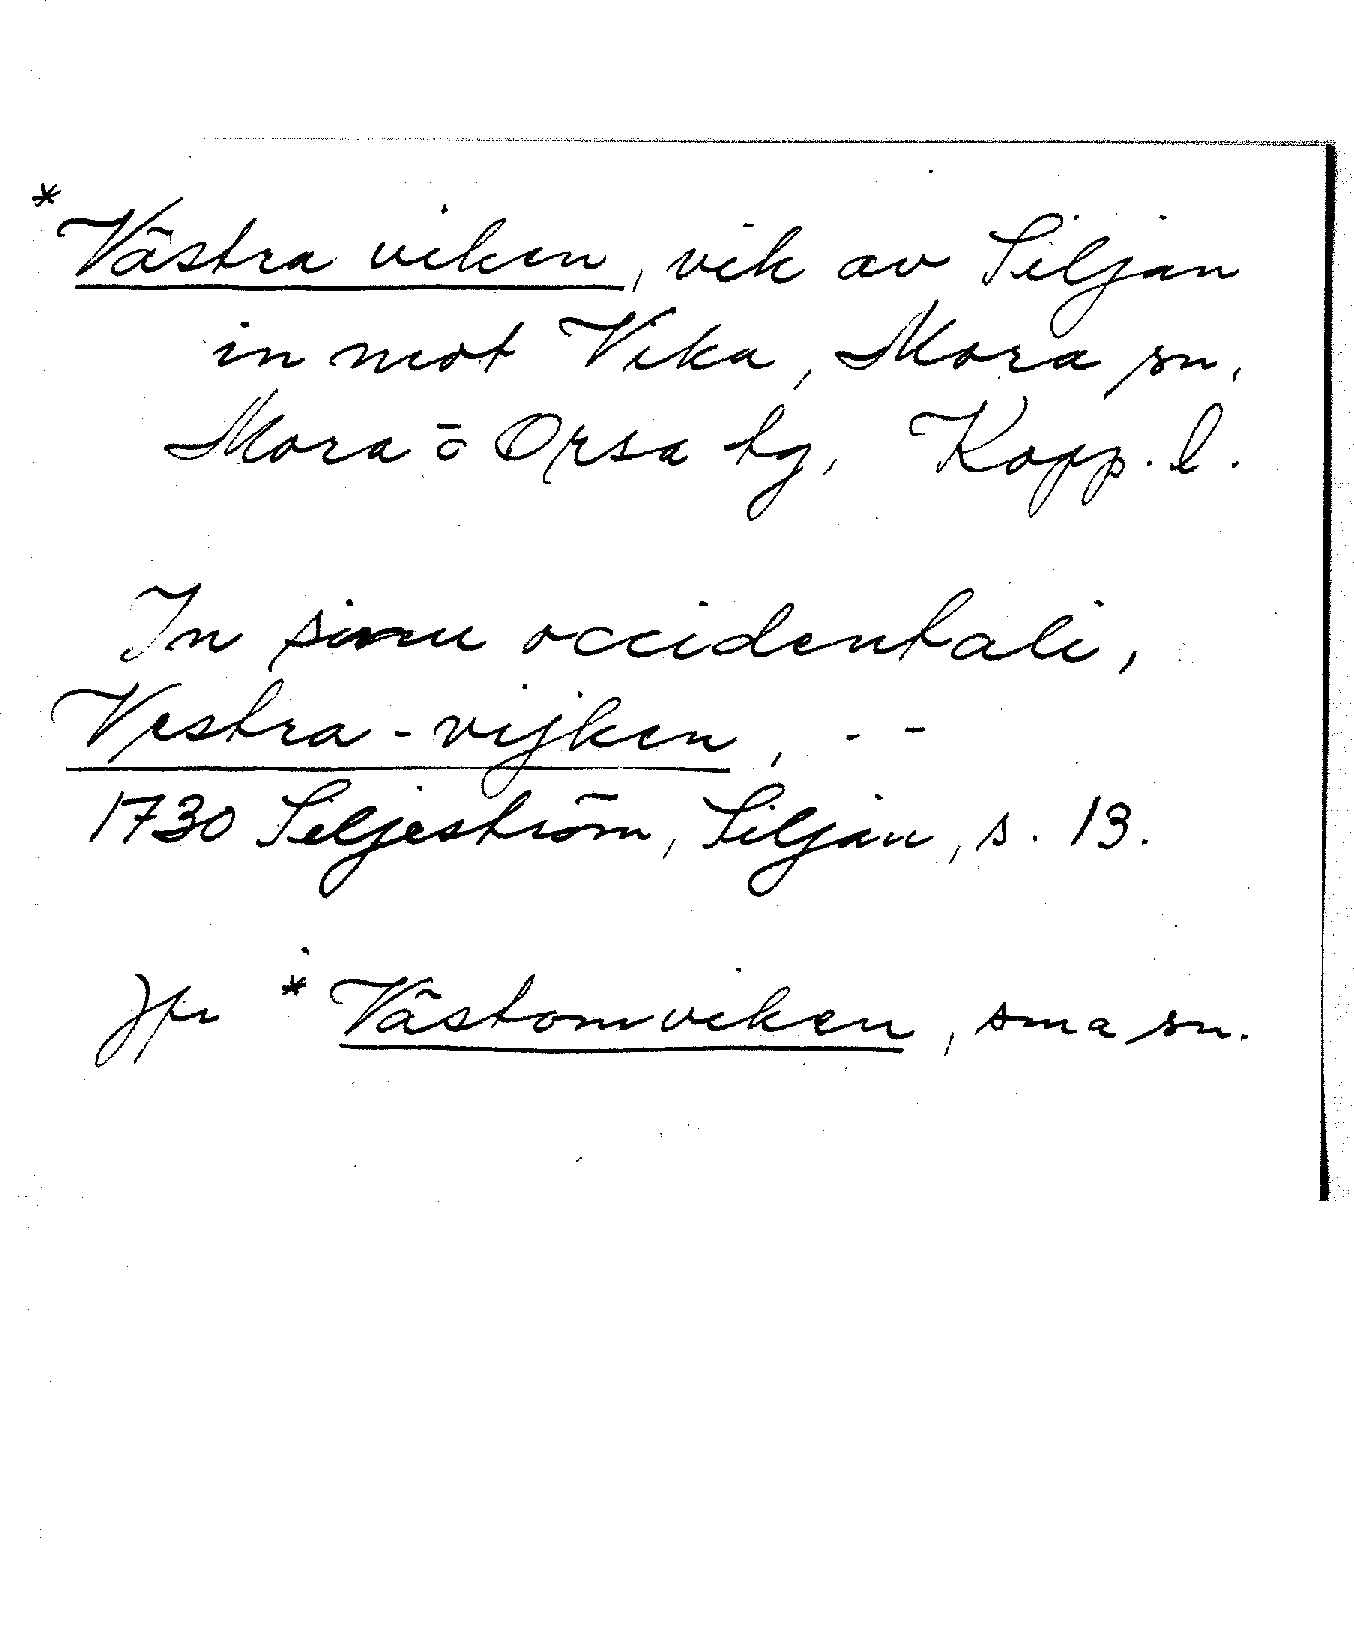 *Västra viken, vik av Siljan
in mot Vika, Mora sn,
Mora o Orsa tg, Kopp. l.
In sinu occidentali,
Vestra-vijken, - -
1730 Siljeström, Siljan, s. 13.
Jfr *Västomviken, sma sn.